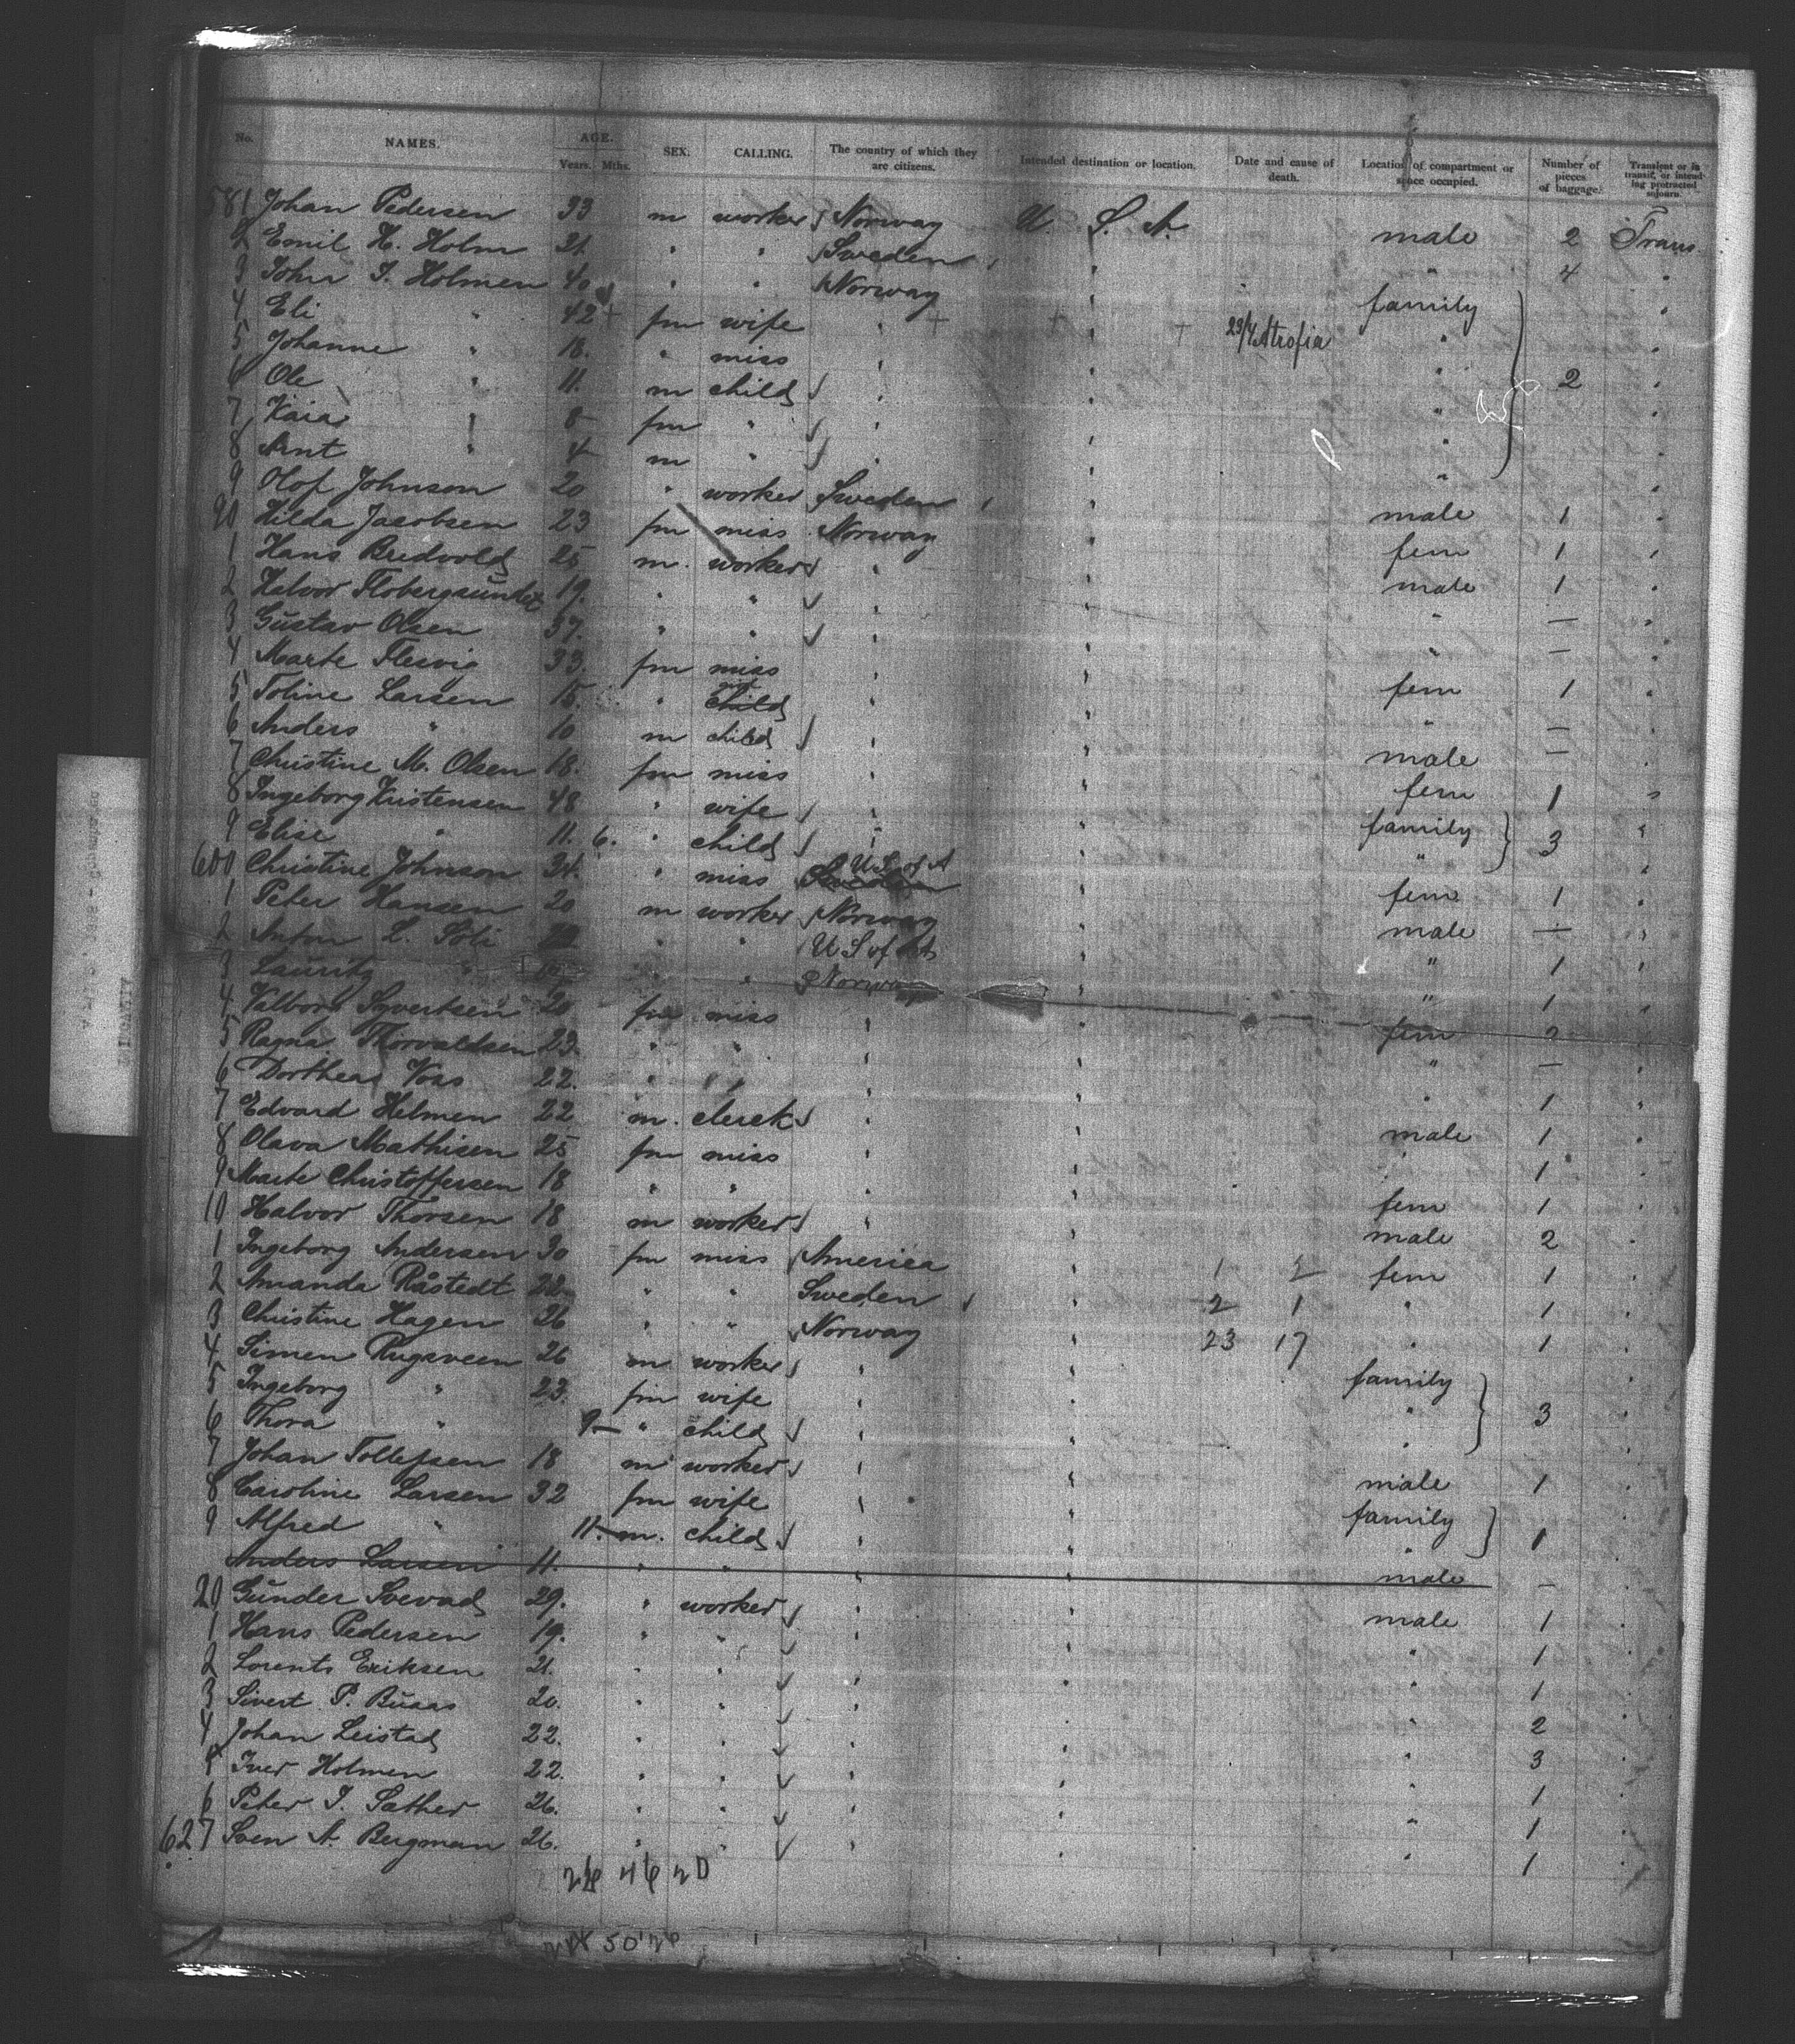 No. NAMES. AGE. Years. Mths. SEX. CALLING. The country of which they are citizens. Intended destination or location. Date and cause of death. Location of compartment or space occupied. Number of pieces of baggage. Transient or in transit, or intending protracted sojourn.
581 Johan Pedersen 33 m worker Norway U. S. A. male 2 Trans.
2 Emil H. Holm 21 " " Sweden " " 4 "
3 John J. Holmen 40 " " Norway " family "
4 Eli " 42 + fm wife " + + + 23/4 Atrofia " "
5 Johanne " 18. " miss " " " 2 "
6 Ole " 11. m child " " " "
7 Kaia " 8 fm " " " " "
8 Arnt " 4 m " " " " "
9 Olof Johnson 20 " worker Sweden " male 1 "
90 Hilda Jacobsen 23 fm miss Norway " fem 1 "
1 Hans Bredvold 25 m. worker " " male 1 "
2 Halvor 19. " " " " " — "
3 Gustav Olsen 37. " " " " " — "
4 Marte Flesvig 33. fm miss " " fem 1 "
5 Toline Larsen 15. " child " " " — "
6 Anders " 10 m child " " male — "
7 Christine M. Olsen 18. fm miss " " fem 1 "
8 Ingeborg Kristensen 48 " wife " " family 3 "
9 Elise " 11. 6. " child " " " "
600 Christine Johnson 21. " miss Sweden U.S. of A " fem 1 "
1 Peter Hansen 20 m worker Norway " male — "
2 L. Soli " " U S of A " " 1 "
3 Lauritz " " " Norway " " 1 "
4 Valborg Syvertsen 20 fm miss " " fem 2 "
5 Ragna Thorvaldsen 23. " " " " " — "
6 Dorthea Voss 22. " " " " " 1 "
7 Edvard Helmen 22 m. clerck " " male 1 "
8 Olava Mathisen 25 fm miss " " " 1 "
9 Marte Christoffersen 18 " " " " fem 1 "
10 Halvor Thorsen 18 m worker " " male 2 "
1 Ingeborg Andersen 30 fm miss America " 1 2 fem 1 "
2 Amanda Råstedt 22. " " Sweden " 2 1 " 1 "
3 Christine Hagen 26 " " Norway " 23 17 " 1 "
4 Simen Rugsveen 26 m worker " " family "
5 Ingeborg " 23. fm wife " " " 3 "
6 Thora " 9 " child " " " "
7 Johan Tollefsen 18 m worker " " male 1 "
8 Caroline Larsen 32 fm wife " " family "
9 Alfred " 11. m. child " " " 1 "
Anders Larsen 11. " " " " male — "
20 Gunder Soevad 29. " worker " " male 1 "
1 Hans Pedersen 19. " " " " " 1 "
2 Lorents Eriksen 21. " " " " " 1 "
3 Sivert P. Buaas 20. " " " " " 2 "
4 Johan Leistad 22. " " " " " 3 "
5 Iver Holmen 22. " " " " " 1 "
6 Peter J. Sather 26. " " " " " 1 "
627 Sven A. Bergman 26. " " " " " 1 "
46 20
50 26